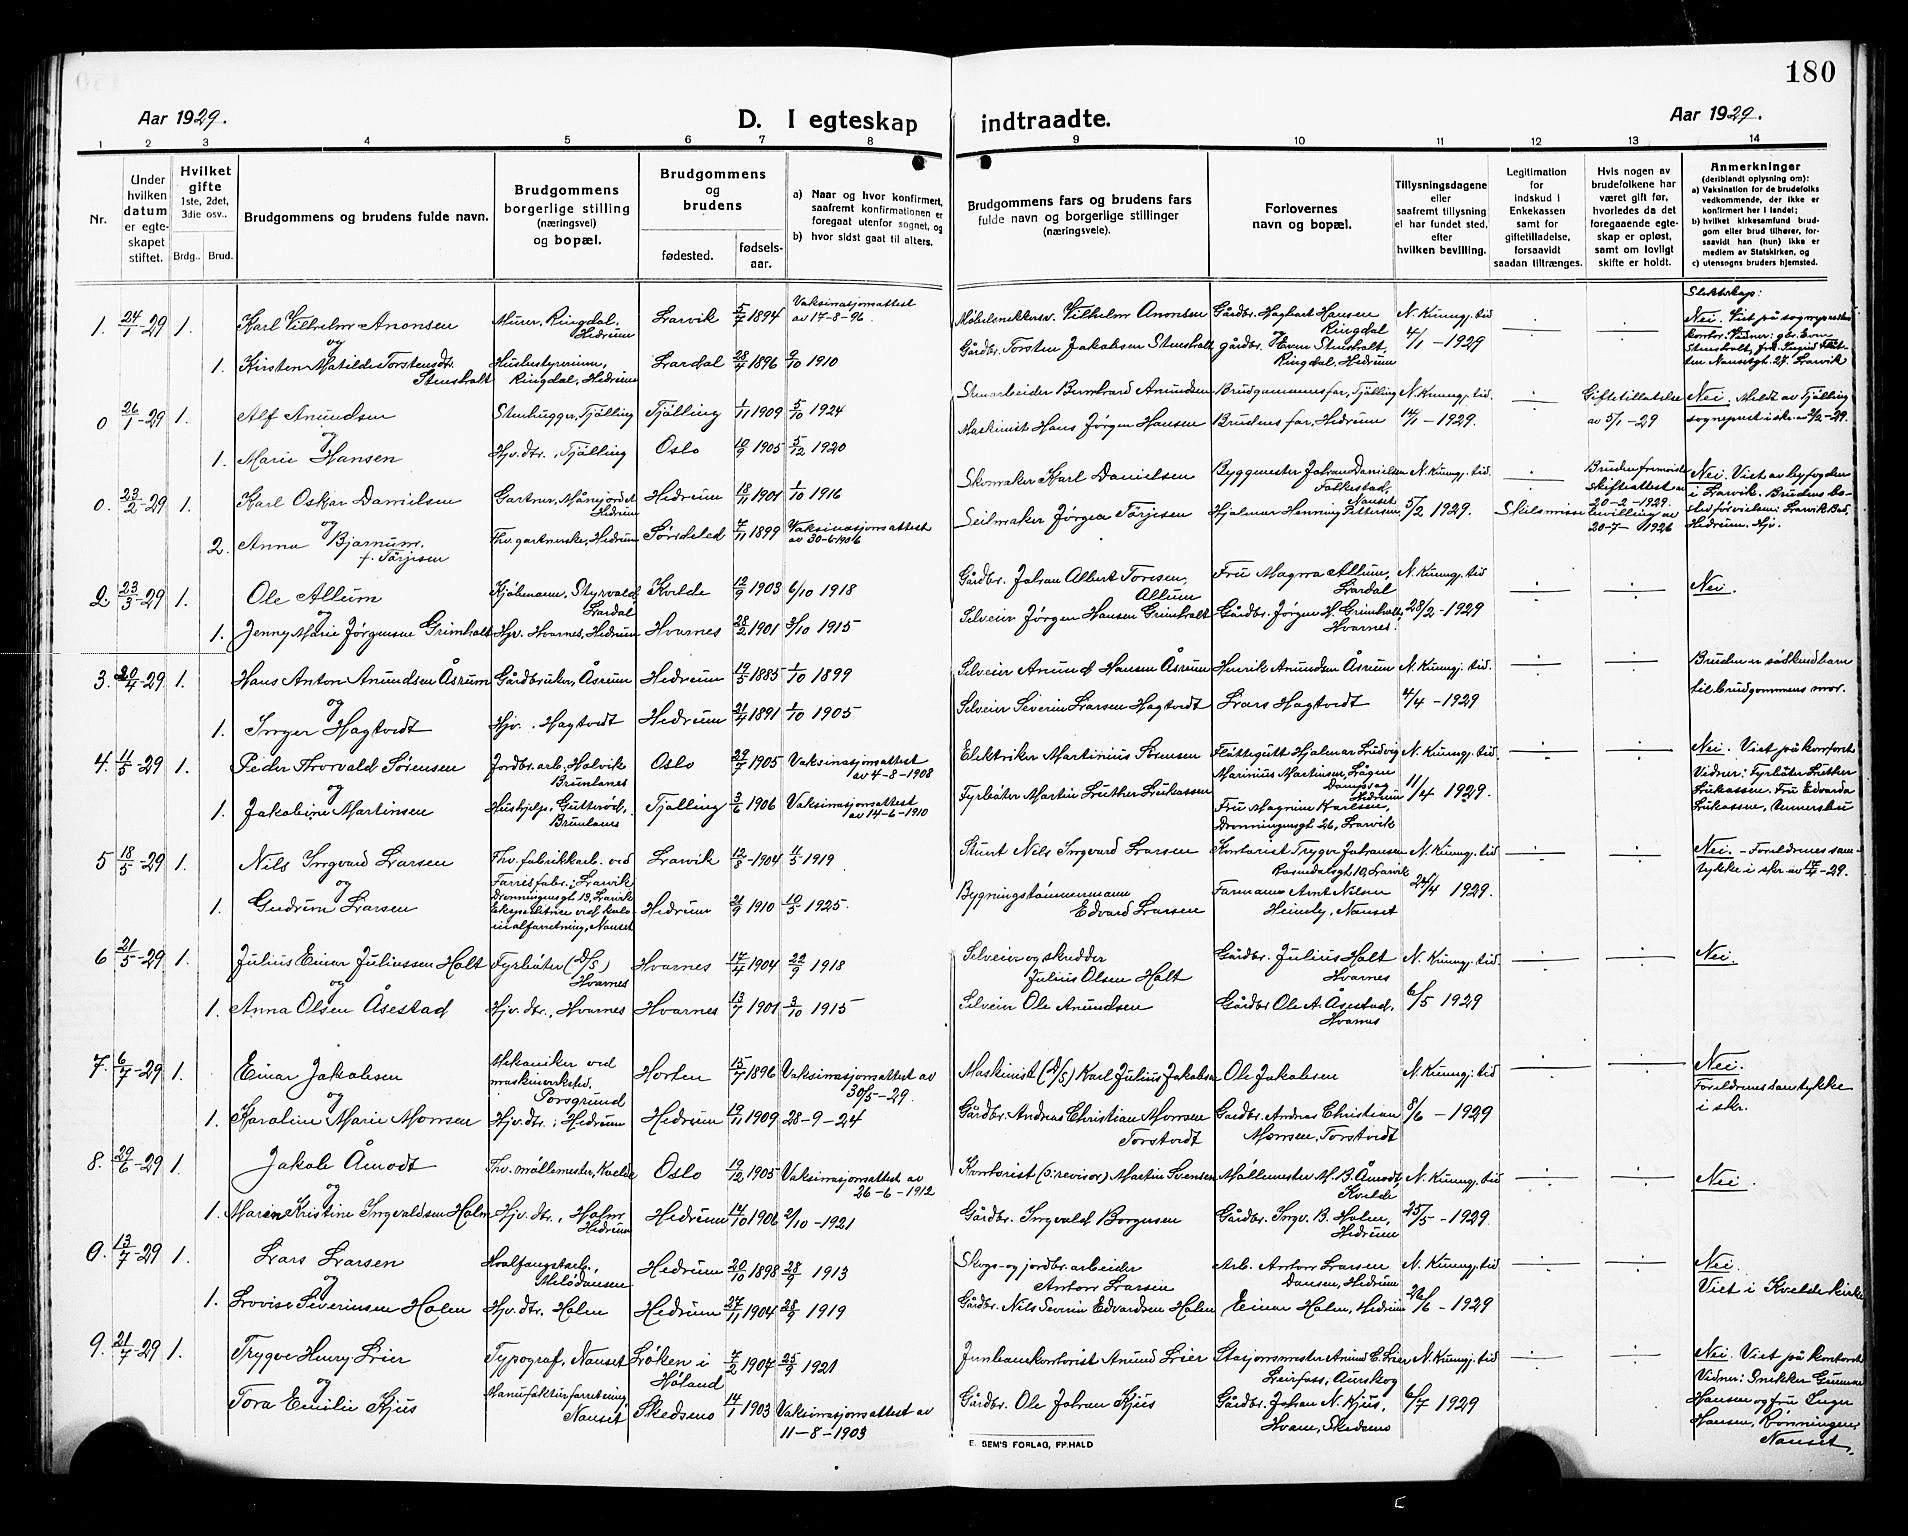 180
Aar 1929.
D. I egteskap indtraadte.
Aar 1929.
1 2 3 4 5 6 7 8 9 10 11 12 13 14
Nr.
Under hvilken datum er egteskapet stiftet.
Hvilket gifte 1ste, 2det, 3die osv..
Brdg.. Brud.
Brudgommens og brudens fulde navn.
Brudgommens borgerlige stilling (næringsvei) og bopæl.
Brudgommens og brudens
fødested.
fødselsaar.
a) Naar og hvor konfirmert, saafremt konfirmationen er foregaat utenfor sognet, og
b) hvor sidst gaat til alters.
Brudgommens fars og brudens fars fulde navn og borgerlige stillinger (næringsveie).
Forlovernes navn og bopæl.
Tillysningsdagene eller saafremt tillysning ei har fundet sted, efter hvilken bevilling.
Legitimation for indskud i Enkekassen samt for giftetilladelse, forsaavidt saadan tiltrænges.
Hvis nogen av brudefolkene har været gift før, hvorledes da det foregaaende egteskap er opløst, samt om lovligt skifte er holdt.
Anmerkninger (deriblandt oplysning om):
a) Vaksination for de brudefolks vedkommende, der ikke er konfirmert her i landet;
b) hvilket kirkesamfund brudgom eller brud tilhører, forsaavidt han (hun) ikke er medlem av Statskirken, og
c) utensogns bruders hjemsted.
1. 24/1-29 1. Karl Vilhelm Anonsen Murer, Ringdal, Hedrum Larvik 5/7 1894 Vaksinasjonsattest av 17-8-96. Møbelsnekkersv. Vilhelm Anonsen Gårdbr. Hagbart Hansen Ringdal N. Kunngj. tid Slektskap: Nei. Viet på sogneprestens kontor. Vidner:
og
1. Kirsten Matilde Torstensdtr. Stensholt Husbestyrerinne, Ringdal, Hedrum Lardal 28/4 1896 9/10 1910 Gårdbr. Torsten Jakobsen Stensholt og gårdbr. Even Stensholt Ringdal, Hedrum 4/1 - 1929 Nansetgt. 27. Larvik
0 26/1-29 1. Alf Anundsen Stenhugger, Tjølling Tjølling 1/11 1909 5/10 1924 Stenarbeider Bernhard Anundsen Brudgommens far, Tjølling N. Kunngj. tid Giftetillatelse av 5/1 - 29 Nei. Meldt av Tjølling sogneprest i skr. av 2/2-29.
og
1. Marie Hansen Hjv. dtr., Tjølling Oslo 10/9 1905 5/12 1920 Maskinist Hans Jørgen Hansen Brudens far, Hedrum 14/1 - 1929.
0. 23/2-29 1. Karl Oskar Danielsen Gartner, Månejordet Hedrum Hedrum 18/11 1901 1/10 1916 Skomaker Karl Danielsen Byggmester Johan Danielsen Falkestad, Nanset N. Kunngj. tid Bruden fremviste skifteattest av 20-2-1929. Nei. Viet av byfogden i Larvik.
og
2. Anna Bjarnum. f. Törjesen Fhv. gartnerske, Hedrum Söndeled 7/11 1899 Vaksinasjonsattest av 30-6-1906 Seilmaker Jørgen Törjesen Hjalmar Henning Pettersen 5/2 1929. Skilsmisse bevilling av 20-7- 1926 Hedrum.
2. 23/3-29 1. Ole Allum Kjøbmann, Styrvold, Lardal Kvelde 12/9 1903 6/10 1918 Gårdbr. Johan Albert Toresen Allum Fru Magna Allum, Lardal N. Kunngj. tid Nei.
og
1. Jenny Marie Jørgensen Grimholt Hjv. Hvarnes, Hedrum Hvarnes 28/2 1901 3/10 1915 Selveier Jørgen Hansen Grimholt Gårdbr. Jørgen H. Grimholt, Hvarnes. 28/2 - 1929
3. 20/4-29 1. Hans Anton Anundsen Åsrum Gårdbruker, Åsrum Hedrum 19/5 1885 1/10 1899 Selveier Anund Hansen Åsrum Henrik Anundsen Åsrum N. Kunngj. tid. Bruden er södskendbarn til brudgommens mor.
og
1. Inger Hagtvedt Hjv., Hagtvedt Hedrum 21/4 1891 1/10 1905 Selveier Severin Larsen Hagtvedt Lars Hagtvedt 4/4 - 1929
4. 11/5-29 1. Peder Thorvald Sörensen Jordbr. arb., Halvik Brunlanes Oslo 29/7 1905 Vaksinasjonsattest av 4-8-1908 Elektriker Martinius Sörensen Flöttegutt Hjalmar Ludvig Marinius Martinsen, Lågen Damps og Hedrum N. Kunngj. tid Nei. Viet på kontoret. Vidner: Fyrbøter Luther Lukassen. Fru Edvarda Lukassen,
og
1. Jakobine Martinsen Hushjelp, Gutterød, Brunlanes Tjølling 3/6 1906 Vaksinasjonsattest av 14-6-1910 Fyrbøter Martin Luther Lukassen Fru Magnine Karlsen, Dronningensgt 26, Larvik 11/4 1929.
5 18/5-29 1. Nils Ingvard Larsen Fhv. fabrikkarb. ved Farrisfabr. i Larvik Dronningensgt 19, Larvik Larvik 12/8-1904 11/5 1919 Stuert Nils Ingvard Larsen Kontorist Trygve Johansen Rosendalsgt 10, Larvik N. Kunngj. tid Nei. - Foreldrenes samtykke i skr. av 17/4-29.
og
1. Gudrun Larsen Ekspeditrice ved kolonialforretning, Nanset Hedrum 21/9 1910 10/5 1925. Bygningstömmermann Edvard Larsen Formann Arnt Nilsen Heimly, Nanset 24/4 1929.
6 21/5-29 1. Julius Einar Juliussen Holt Fyrbøter (D/S) Hvarnes Hvarnes 17/4 1904 22/9 1918 Selveier og skredder Julius Olsen Holt Gårdbr. Julius Holt Hvarnes N. Kunngj. tid. Nei.
og
1. Anna Olsen Åsestad Hjv. dtr., Hvarnes Hvarnes 13/7 1901 3/10 1915 Selveier Ole Anundsen Gårdbr Ole A. Åsestad, Hvarnes 6/5 1929
7. 6/7-29 1. Einar Jakobsen Mekaniker ved maskinverksted, Porsgrund Horten 15/7 1896 Vaksinasjonsattest av 30/5-29. Maskinist (D/S) Karl Julius Jakobsen Ole Jakobsen N. Kunngj. tid Nei. Foreldrenes samtykke i skr.
og
1. Karoline Marie Momsen Hjv. dtr., Hedrum Hedrum 19/11 1909 28-9-24 Gårdbr. Andreas Christian Momsen Torstvedt Gardbr. Andreas Christian Momsen, Torstvedt 8/6 - 1929
8. 29/6-29 1. Jakob Åmodt Fhv. møllemester, Kvelde Oslo 19/12 1905 Vaksinasjonsattest av 26-6-1912 Kontorist (ɔ: revisor) Martin Svensen Møllemester M. B. Åmodt, Kvelde N. Kunngj. tid Nei.
og
1. Maren Kristine Ingvaldsen Holm Hjv. dtr., Holm, Hedrum Hedrum 14/10 1906 2/10-1921 Gårdbr. Ingvald Borgersen Gårdbr. Ingv. B. Holm, Hedrum 25/5 - 1929.
0. 13/7-29 1. Lars Larsen Hvalfangstarb., Hedrum 20/10 1898 28/9 1913 Skogs- og jordbr. arbeider Anton Larsen Arb. Anton Larsen Dansen, Hedrum N. Kunngj. tid Nei. Viet i Kvelde kirke
og
1. Lovise Severinsen Holm Hjv. dtr. Holm Hedrum 27/1 1904 28/9 1919 Gårdbr. Nils Severin Edvardsen Holm Einar Holm, Hedrum 26/6 - 1929
9. 21/7-29 1. Trygve Henry Lier Typograf, Nanset Løken i Høland 7/2 1904 25/9 1921 Jernbanekontorist Anund Lier Stasjonsmester Anund E. Lier Lierfoss, Aurskog N. Kunngj. tid Nei. Viet på kontoret Vidner: Snikker Gunnar Hansen og fru Inger Hansen, Rønningen, Nanset.
og
Tora Emilie Kjus Manufakturforretning, Nanset Skedsmo 14/1 1903 Vaksinasjonsattest av 11-8-1903 Gårdbr. Ole Johan Kjus Gårdbr. Johan N. Kjus, Hvam, Skedsmo 6/7 1929
E. SEM'S FORLAG, FR.HALD